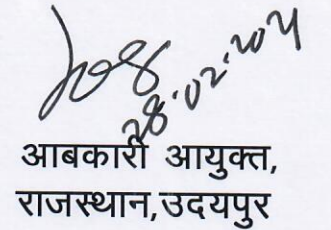 28.02.2021
आबकारी आयुक्त,
राजस्थान,उदयपुर